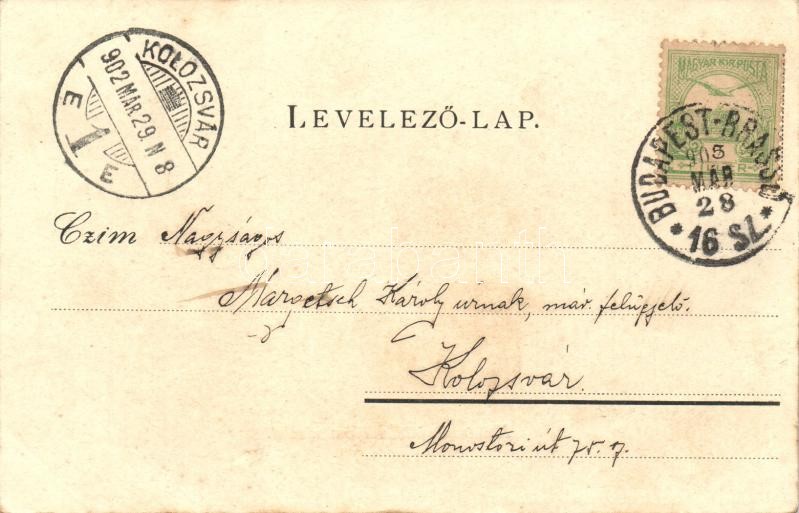 KOLOZSVÁR
902 MÁR 29. N 8
E 1 E
MAGYAR KIR. POSTA
BUDAPEST-BRASSÓ
905
MÁR
28
* 16 SZ. *
LEVELEZŐ-LAP.
Czim Nagyságos
Margetsch Károly urnak, máv. felügyelő.
Kolozsvár.
Monostori út 75.